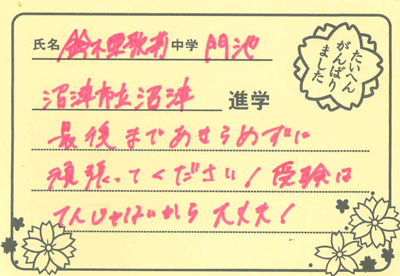 氏名 鈴木 中学 門池
たいへん
がんばり
ました
沼津市立沼津 進学
最後まであきらめずに
頑張ってください！受験は
から 大丈夫！